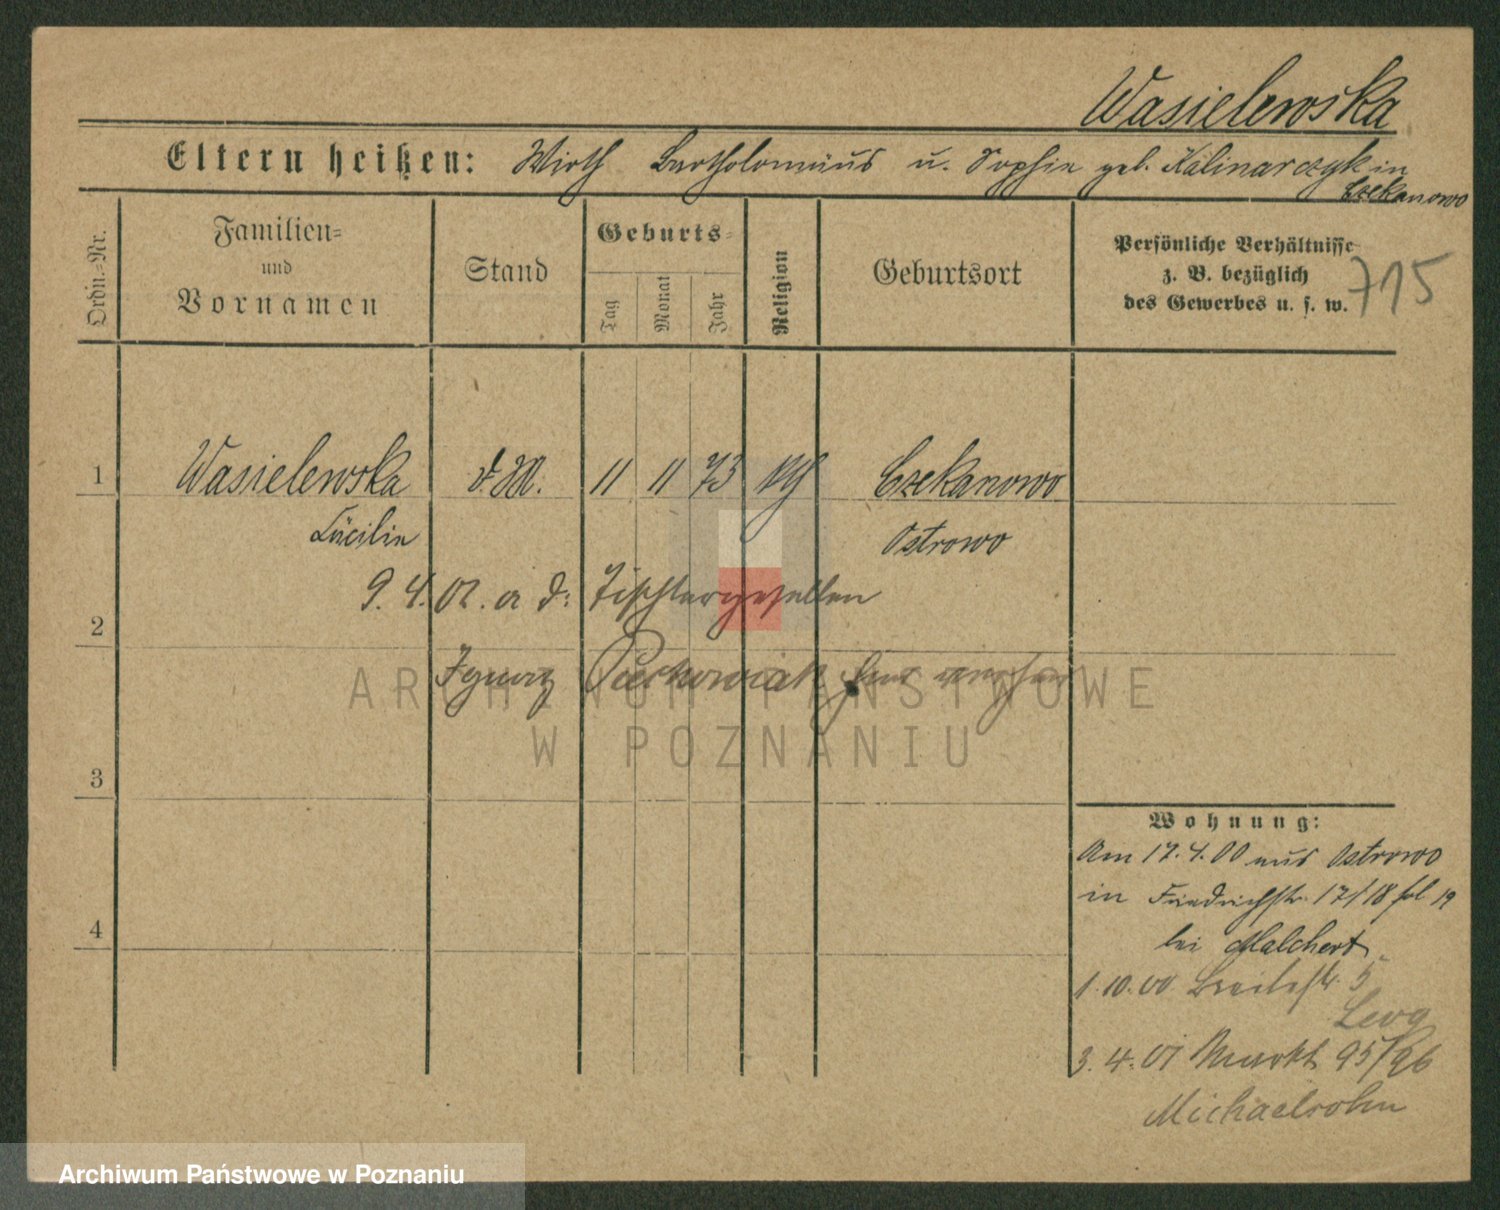 Wasielewska
Eltern heißen: Wirth Bartholomäus u. Sophie geb. Kalinarczyk in
Czekanowo
Ordn.-Nr.
Familien-
und
Vornamen
Stand
Geburts-
Tag
Monat
Jahr
Religion
Geburtsort
Persönliche Verhältnisse
z. B. bezüglich
des Gewerbes u. s. w.
715
1 Wasielewska d. M. 11 11 73 kth Czekanowo
Cäcilie Ostrowo
9. 4. 02. a d: Tischlergesellen
2
Ignatz
ARCHIWUM PAŃSTWOWE
W POZNANIU
3
4
Wohnung:
Am 17.4.00 aus Ostrowo
in Friedrichstr. 17/18 fol 19
bei Malchert
1.10.00 Breitestr. 5
Levy
3.4.01 Markt 95/96
Michaelsohn
Archiwum Państwowe w Poznaniu